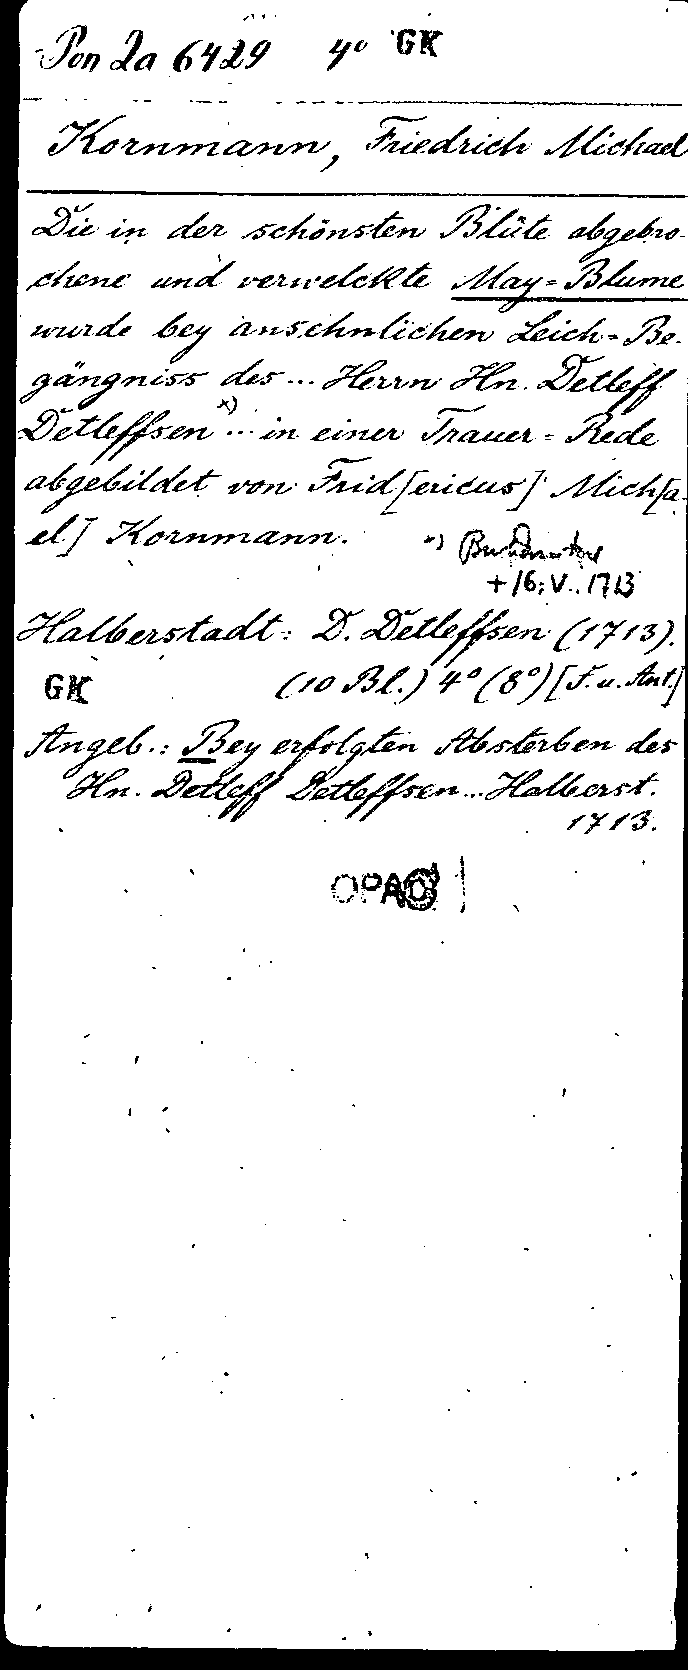 Pon 2a 6429 4° GK
Kornmann, Friedrich Michael
Die in der schönsten Blüte abgebro-
chene und verwelckte May=Blume
wurde bey ansehnlichen Leich=Be-
gängniss des ... Herrn Hn. Detleff
Detleffsen x) ... in einer Trauer=Rede
abgebildet von Frid[ericus] Mich[a-
el] Kornmann.
+ 16. V. 1713
Halberstadt: D. Detleffsen (1713).
GK (10 Bl.) 4° (8°) [T. u. Ant.]
Angeb.: Bey erfolgten Absterben des
Hn. Detleff Detleffsen ... Halberst.
1713.
OPAC